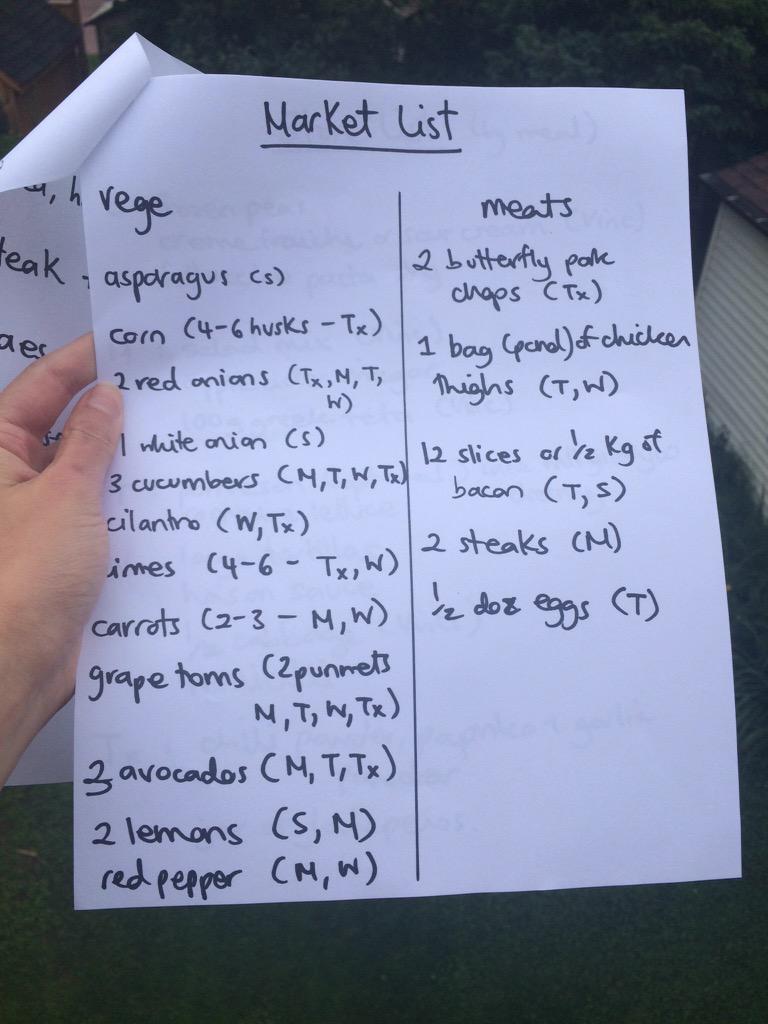 Market List
vege
asparagus (s)
corn (4-6 husks - Tx)
2 red onions (Tx, M, T,
W)
1 white onion (S)
3 cucumbers (M, T, W, Tx)
cilantro (W, Tx)
imes (4-6 - Tx, W)
carrots (2-3 - M, W)
grape toms (2 punnets
M, T, W, Tx)
3 avocados (M, T, Tx)
2 lemons (S, M)
red pepper (M, W)
meats
2 butterfly pork
chops (Tx)
1 bag (pand) of chicken
thighs (T, W)
12 slices or 1/2 Kg of
bacon (T, S)
2 steaks (M)
1/2 doz eggs (T)
teak